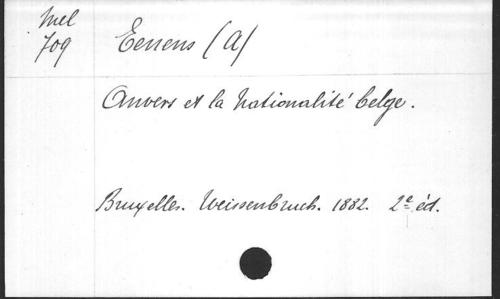 Mel
709
Eenens (A)
Anvers et la Nationalité belge.
Bruxelles. Weissenbruch. 1882. 2e éd.